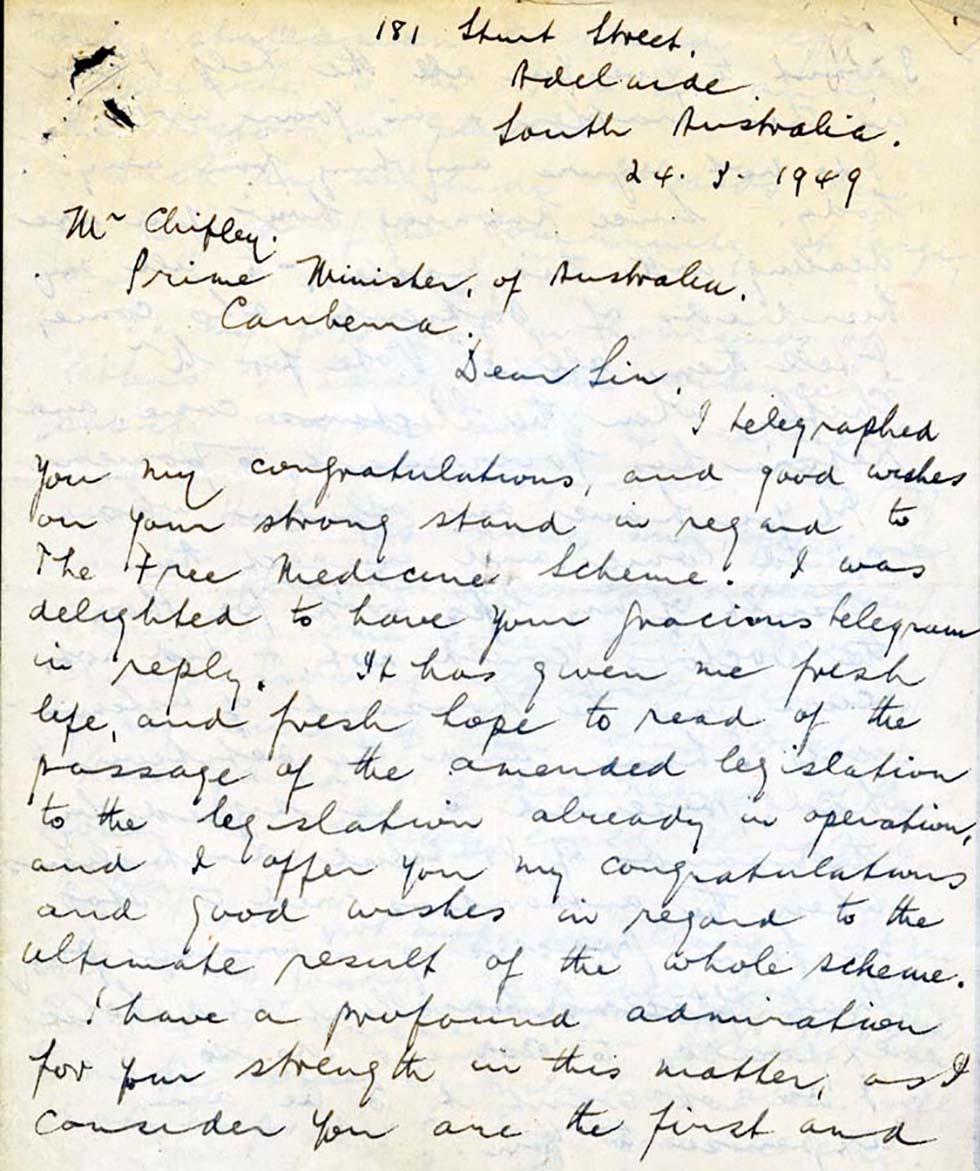 181 Sturt Street,
Adelaide.
South Australia.
24. 3. 1949
Mr Chifley.
Prime Minister, of Australia.
Canberra.
Dear Sir,
I telegraphed
you my congratulations, and good wishes
on your strong stand in regard to
The Free Medicine Scheme. I was
delighted to have your gracious telegram
in reply. It has given me fresh
life, and fresh hope to read of the
passage of the amended legislation
to the legislation already in operation,
and I offer you my congratulations
and good wishes in regard to the
ultimate result of the whole scheme.
I have a profound admiration
for your strength in this matter, as I
consider you are the first and